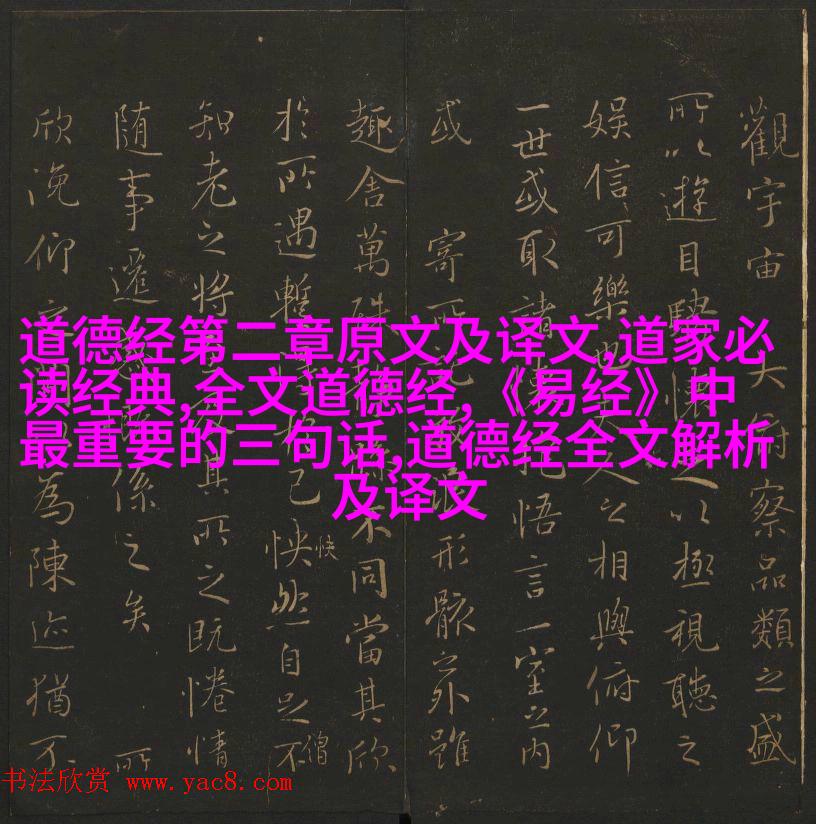 道德经第二章原文及译文,道家必
读经典,全文道德经,《易经》中
最重要的三句话,道德经全文解析
及译文
觀宇宙大察品類之盛
所以遊目騁以極視聽之
娱信可樂也人之相與俯仰
一世或取諸悟言一室之内
或寄所形骸之外雖
趣舍萬殊不同當其欣
於所遇蹔己怏然自足不
快
僧
知老之将其所之既惓情
随事遷係之矣 所
欣俛仰為陳迹猶不
书法欣赏 www.yac8.com